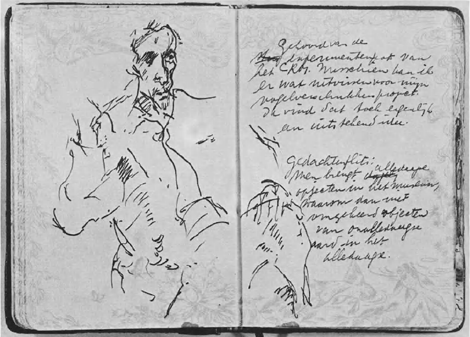 Gehoord van de
experimentenpot van
het CRM. Misschien kan ik
er wat uitvissen voor mijn
vogelverschrikkersproject
Ik vind dat toch eigenlijk
een uitstekend idee.
Gedachtenflits:
Men brengt alledaagse
objecten in het museum,
waarom dan niet
omgekeerd objecten
van onalledaagse
aard in het
alledaagse.